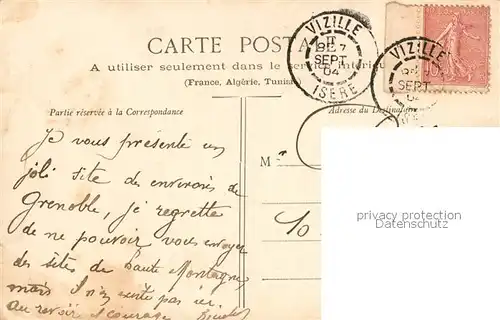 CARTE POSTALE
A utiliser seulement dans le service intérieur
(France, Algérie, Tunisie)
VIZILLE
7
SEPT
04
ISÈRE
VIZILLE
SEPT
04
Partie réservée à la Correspondance
Adresse du Destinataire
M
10
Je vous présente un
joli site des environs de
Grenoble, je regrette
de ne pouvoir vous envoyer
des sites de haute Montagne,
mais il n'en vente pas ici.
au revoir et courage
privacy protection
Datenschutz